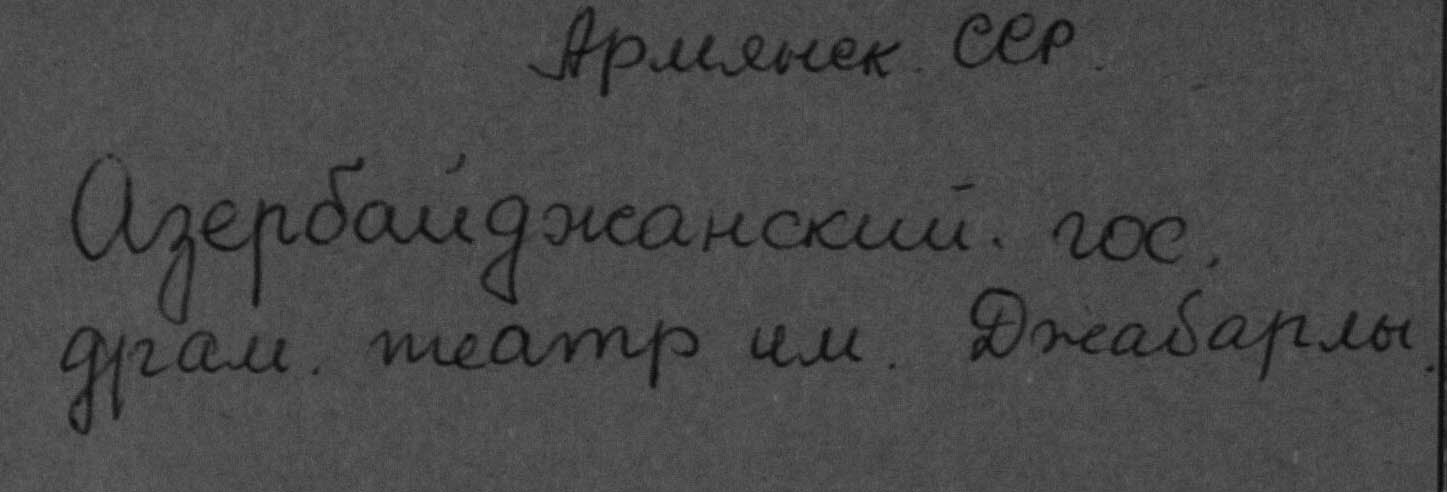 Армянск. ССР.
Азербайджанский. гос.
драм. театр им. Джабарлы.